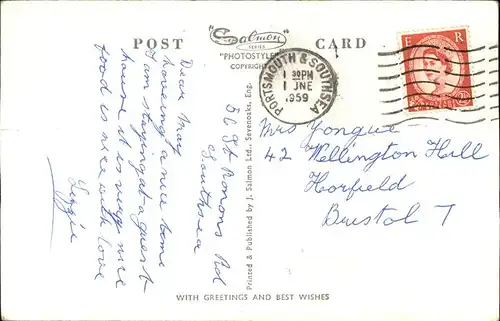 POST CARD
"Salmon"
SERIES
"PHOTOSTYLE"
COPYRIGHT
E R
PORTSMOUTH & SOUTHSEA
1 30PM
1 JNE
1959
Dear May
haveing a nice time
I am staying at a guest
house it is very nice
food is nice with love
Lizzie
St Ronons Rd
Southsea
Printed & Published by J. Salmon Ltd., Sevenoaks, Eng.
Mrs Yongue
42 Wellington Hill
Horfield
Bristol 7
WITH GREETINGS AND BEST WISHES